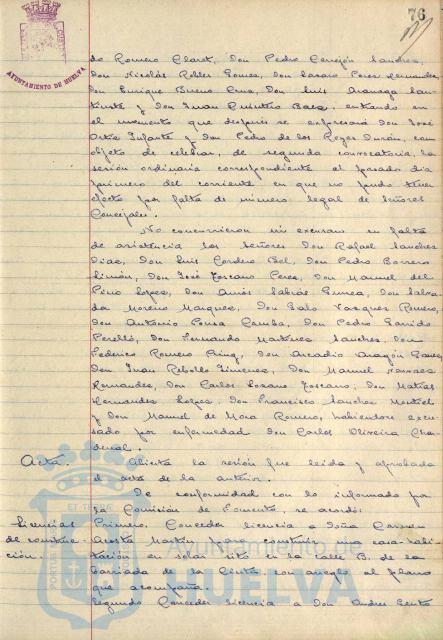 76
AYUNTAMIENTO DE HUELVA
do Romero Claret, Don Pedro Cerejón Sanchez,
Don Nicolás Robles Gomez, don Lazaro Perez Hernandez,
Don Enrique Bueno Cruz, Don Luis Aranaga San-
y Don Juan Quintero Baez, entrando en
el momento que después se expresará Don José
Orta Infante y Don Pedro de los Reyes Durán, con
objeto de celebrar, de segunda convocatoria, la
sesión ordinaria correspondiente al pasado dia
primero del corriente en que no pudo tener
efecto por falta de número legal de Señores
Concejales.
No concurrieron ni excusaron su falta
de asistencia los Señores Don Rafael Sanchez
Diaz, Don Luis Cordero Bel, Don Pedro Borrero
Limón, Don José Toscano Perez, Don Manuel del
Pino Lopez, Don Amós Sabrás Gurrea, Don Salva-
dor Moreno Marquez, Don Galo Vazquez Romero,
Don Antonio Pousa Camba, Don Pedro Garrido
Perelló, Don Fernando Martinez Sanchez, Don
Federico Romero, Don Arcadio Aragón Gomez,
Don Juan Rebollo Jimenez, Don Manuel
Hernandez, Don Carlos Lozano Toscano, Don Matias
Hernandez Lopez, Don Francisco Sanchez
y Don Manuel de Mora Romero, habiendose excu-
sado por enfermedad Don Carlos Oliveira Cha-
denal.
Acta. Abierta la sesión fue leida y aprobada
el acta de la anterior.
De conformidad con lo informado por
la Comisión de Fomento, se acordó:
Licencias Primero. Conceder licencia a Doña Carmen
de construc- Acosta Martin para construir una casa-habi-
ción. tación en solar sito en la calle B. de la
barriada de la Cinta con arreglo al plano
que acompaña.
Segundo Conceder licencia a Don Andres
HUELVA